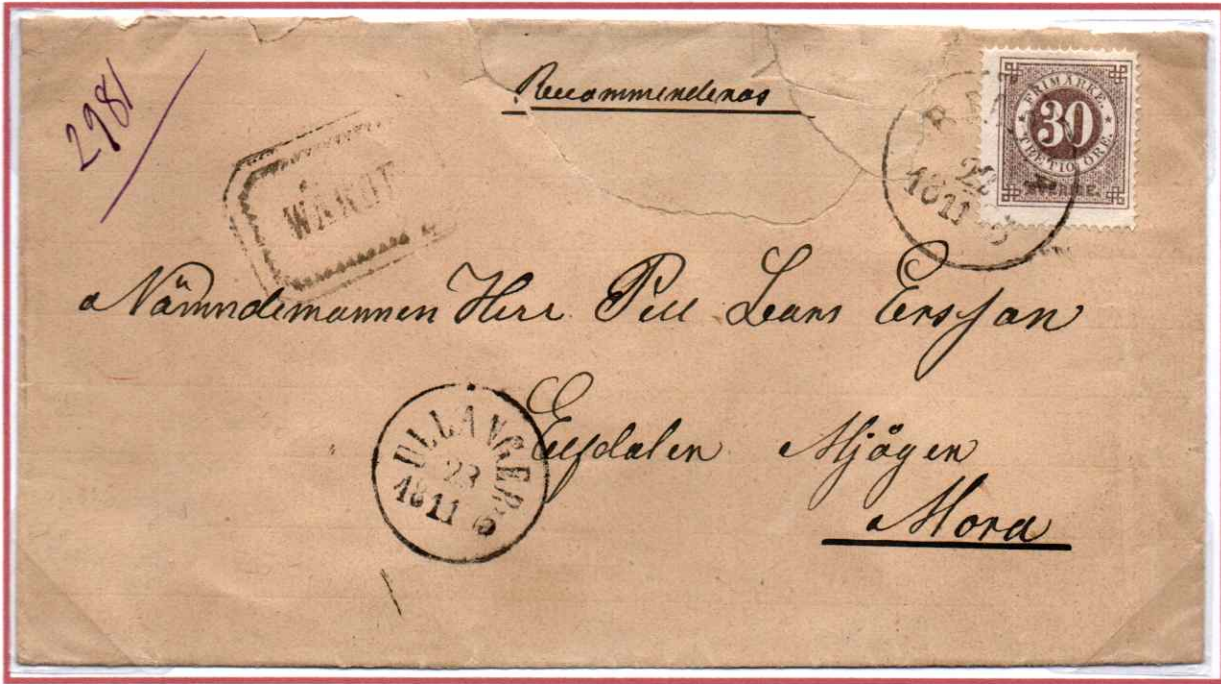 2981
Recommenderas
FRIMÄRKE.
30
TRETIO ÖRE.
SVERIGE.
22
18 11
Nämndemannen Herr Pell Lars Ersson
Elfdalen Mjågen
Mora
ULLÅNGER
23
18 11